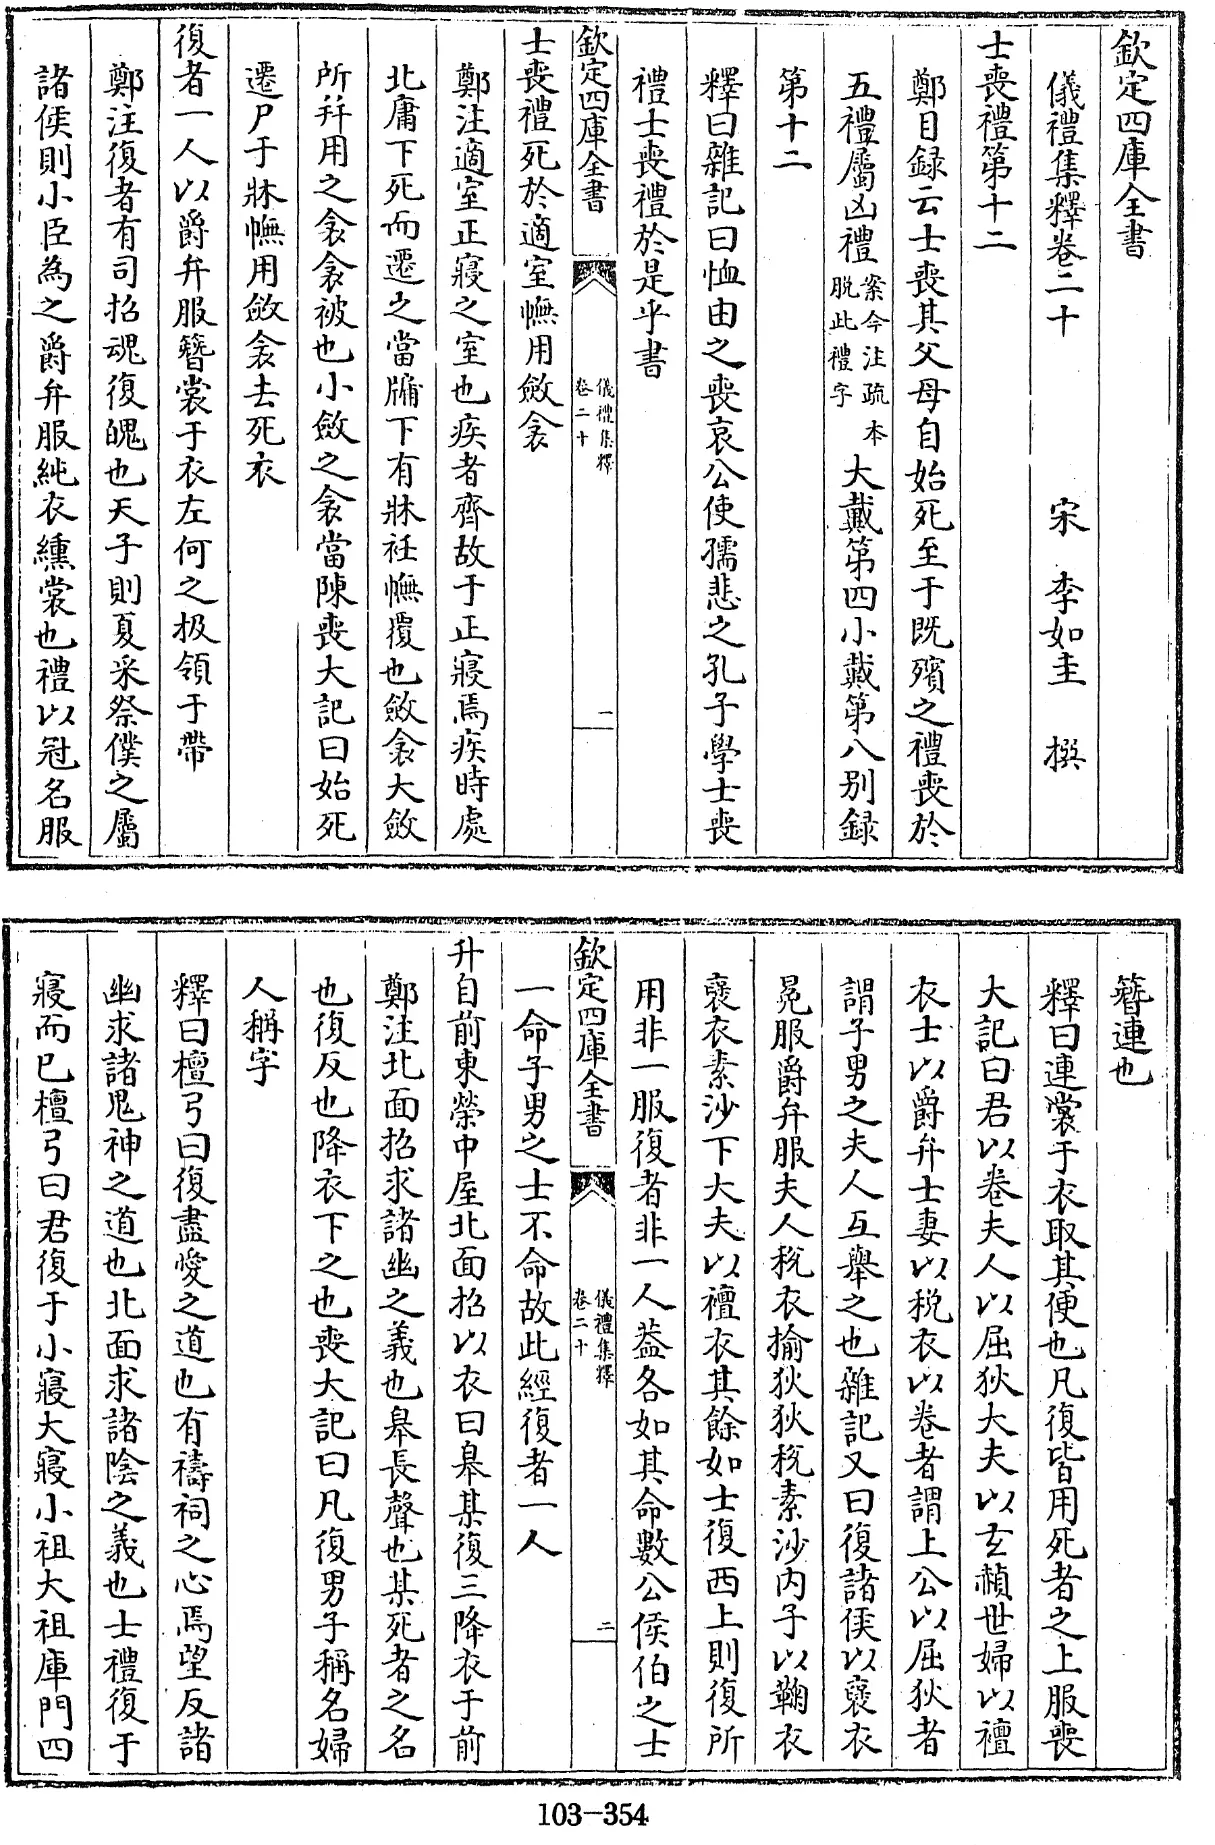 欽定四庫全書
儀禮集釋卷二十
宋 李如圭 撰
士喪禮第十二
鄭目録云士喪其父母自始死至于既殯之禮喪於
五禮屬凶禮案今注疏本脱此禮字大戴第四小戴第八别録
第十二
釋曰雜記曰恤由之喪哀公使孺悲之孔子學士喪
禮士喪禮於是乎書
欽定四庫全書
儀禮集釋
卷二十
一
士喪禮死於適室幠用斂衾
鄭注適室正寢之室也疾者齊故于正寢焉疾時處
北庸下死而遷之當牖下有牀衽幠覆也斂衾大斂
所并用之衾衾被也小斂之衾當陳喪大記曰始死
遷尸于牀幠用斂衾去死衣
復者一人以爵弁服簪裳于衣左何之扱領于帶
鄭注復者有司招魂復魄也天子則夏采祭僕之屬
諸侯則小臣為之爵弁服純衣纁裳也禮以冠名服
簪連也
釋曰連裳于衣取其便也凡復皆用死者之上服喪
大記曰君以卷夫人以屈狄大夫以玄赬世婦以襢
衣士以爵弁士妻以税衣以卷者謂上公以屈狄者
謂子男之夫人互舉之也雜記又曰復諸侯以襃衣
冕服爵弁服夫人税衣揄狄狄税素沙内子以鞠衣
襃衣素沙下大夫以襢衣其餘如士復西上則復所
用非一服復者非一人葢各如其命數公侯伯之士
欽定四庫全書
儀禮集釋
卷二十
二
一命子男之士不命故此經復者一人
升自前東榮中屋北面招以衣曰皋某復三降衣于前
鄭注北面招求諸幽之義也皋長聲也某死者之名
也復反也降衣下之也喪大記曰凡復男子稱名婦
人稱字
釋曰檀弓曰復盡愛之道也有禱祠之心焉望反諸
幽求諸鬼神之道也北面求諸陰之義也士禮復于
寢而已檀弓曰君復于小寢大寢小祖大祖庫門四
103-354